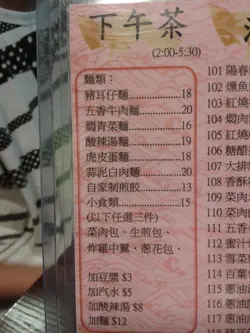 下午茶
(2:00-5:30)
麵類：
豬耳仔麵.................18
五香牛肉麵.............20
燜青菜麵.................16
酸辣湯麵.................19
虎皮蛋麵.................18
蒜泥白肉麵.............20
自家制煎餃.............13
小食類.....................15
(以下任選三件)
菜肉包、生煎包、
炸雞中翼、蔥花包、
加豆漿 $3
加汽水 $5
加酸辣湯 $8
加麵 $12
101 陽春
102 燻魚
103 紅燒
104 燜肉
105 紅燒
106 糖醋
107 大排
108 香酥
109 菜肉
110 菜肉
111 五香
112 蜜汁
113 雪菜
114 榨菜
115 蔥油
116 蔥油
117 蔥油
118